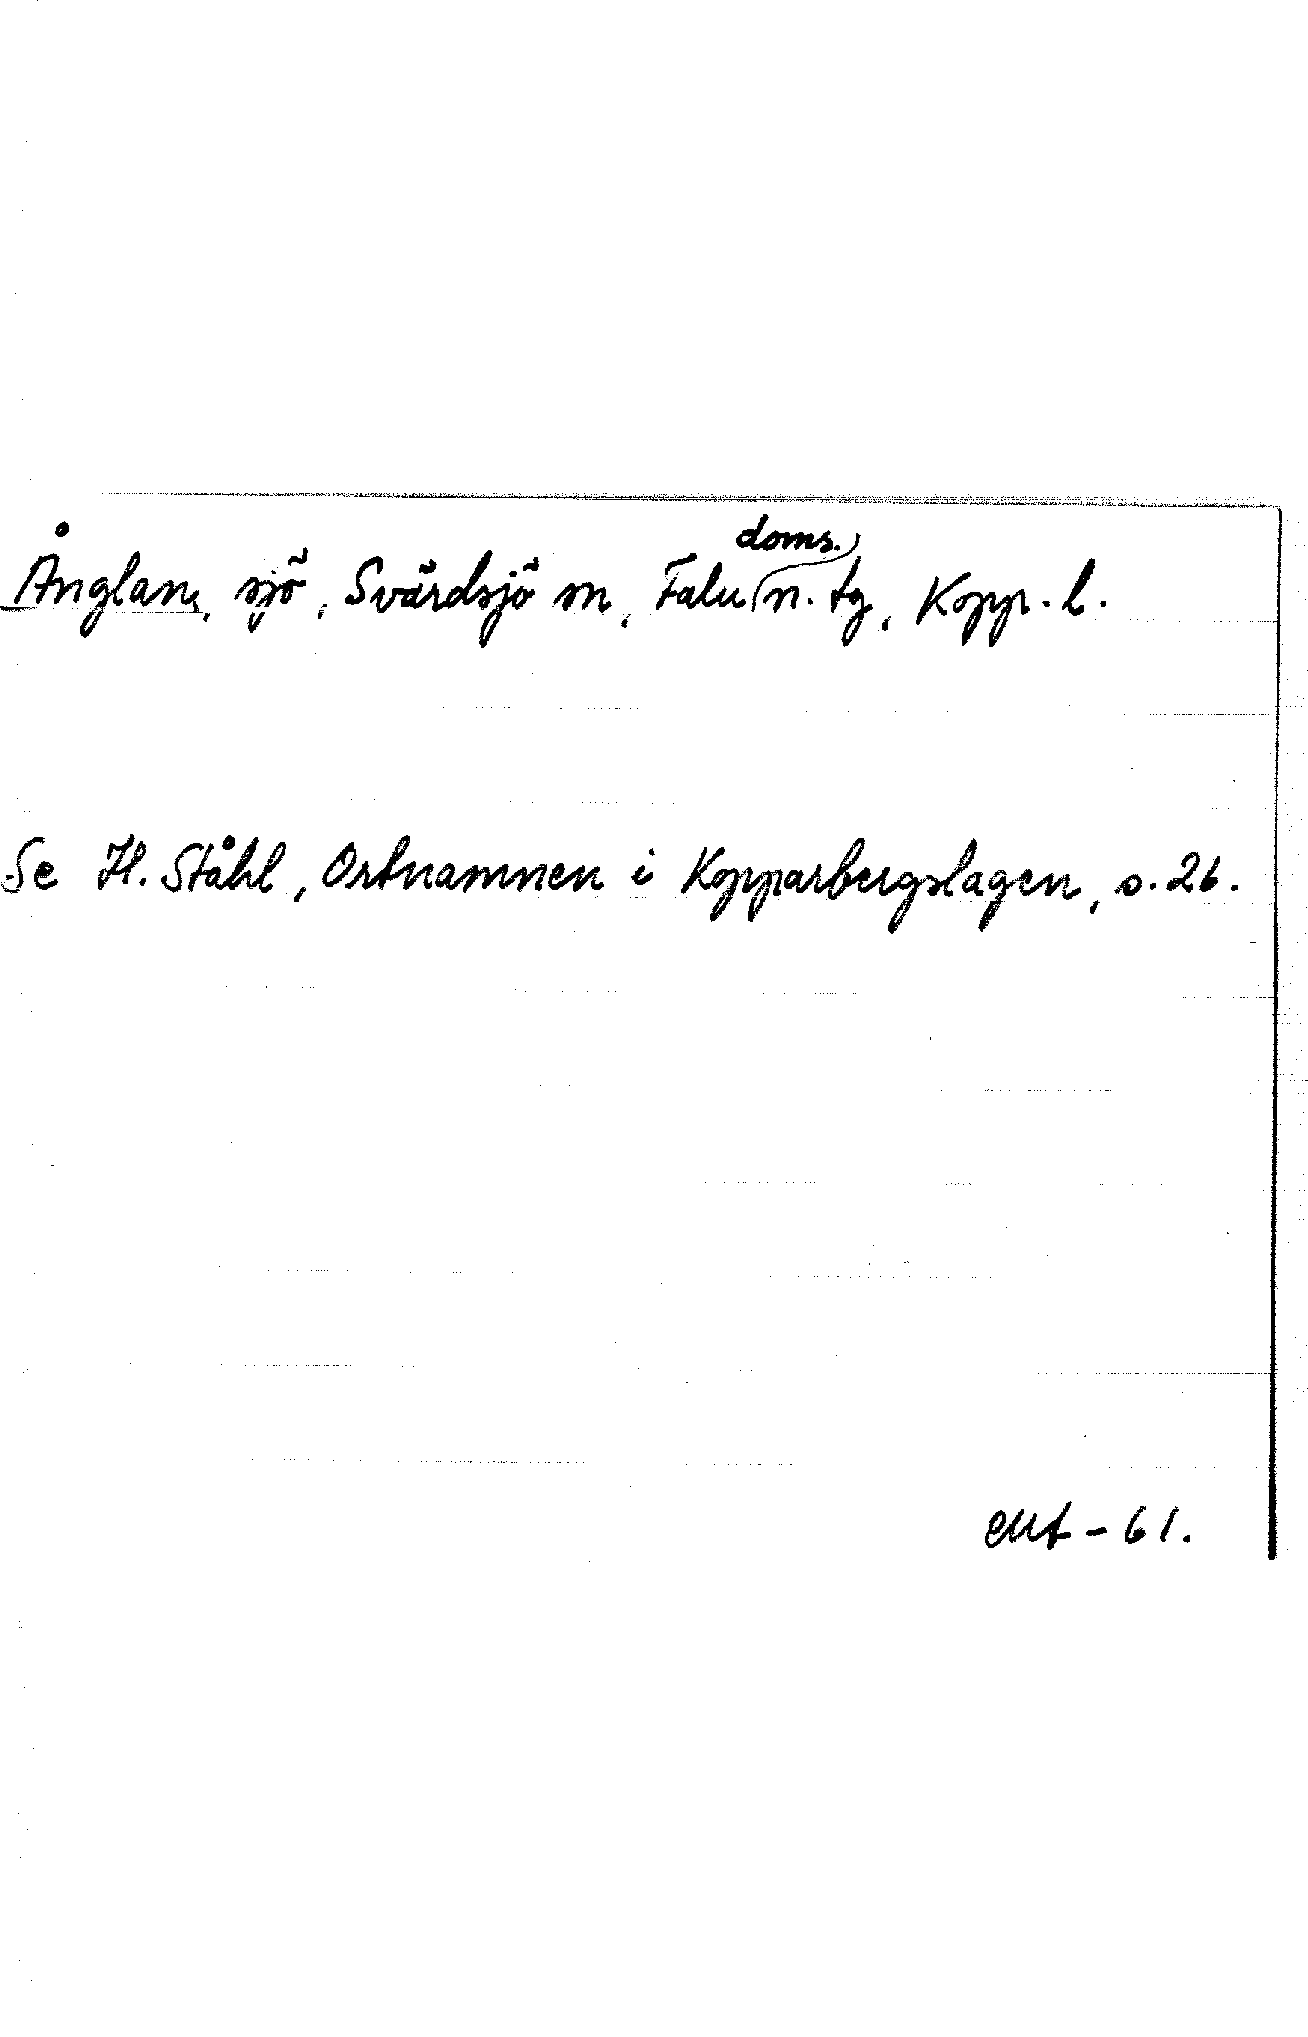 Ånglan, sjö, Svärdsjö sn, Falu doms. n. tg, Kopp. l.
Se H. Ståhl, Ortnamnen i Kopparbergslagen, s. 26.
-61.